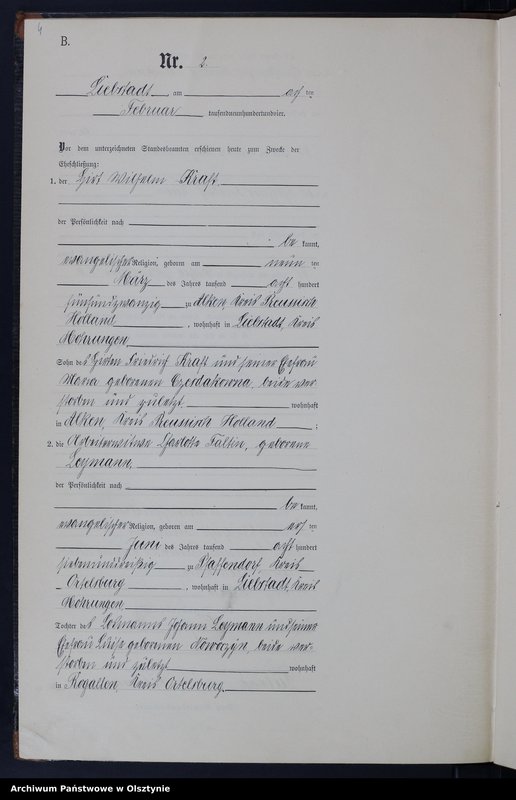 4
B.
Nr. 2.
Liebstadt, am ten
Februar tausendneunhundertundvier.
Vor dem unterzeichneten Standesbeamten erschienen heute zum Zwecke der
Eheschließung:
1. der Hirt Wilhelm Kraft
der Persönlichkeit nach
be kannt,
evangelischer Religion, geboren am neun ten
März des Jahres tausend acht hundert
fünfundzwanzig zu Alken, Kreis Preussisch
Holland, wohnhaft in Liebstadt, Kreis
Mohrungen,
Sohn des Hirten Friedrich Kraft und seiner Ehefrau
Maria geborenen beide ver
storben und zuletzt wohnhaft
in Alken, Kreis Preussisch Holland;
2. die Arbeiterwitwe Faltin, geborene
Loymann,
der Persönlichkeit nach
be kannt,
evangelischer Religion, geboren am ten
Juni des Jahres tausend acht hundert
siebenunddreißig zu Pfaffendorf, Kreis
Ortelsburg, wohnhaft in Liebstadt, Kreis
Mohrungen,
Tochter des Losmanns Johann Loymann und seiner
Ehefrau Luise geborenen beide ver-
storben und zuletzt wohnhaft
in Rogallen, Kreis Ortelsburg,
Archiwum Państwowe w Olsztynie